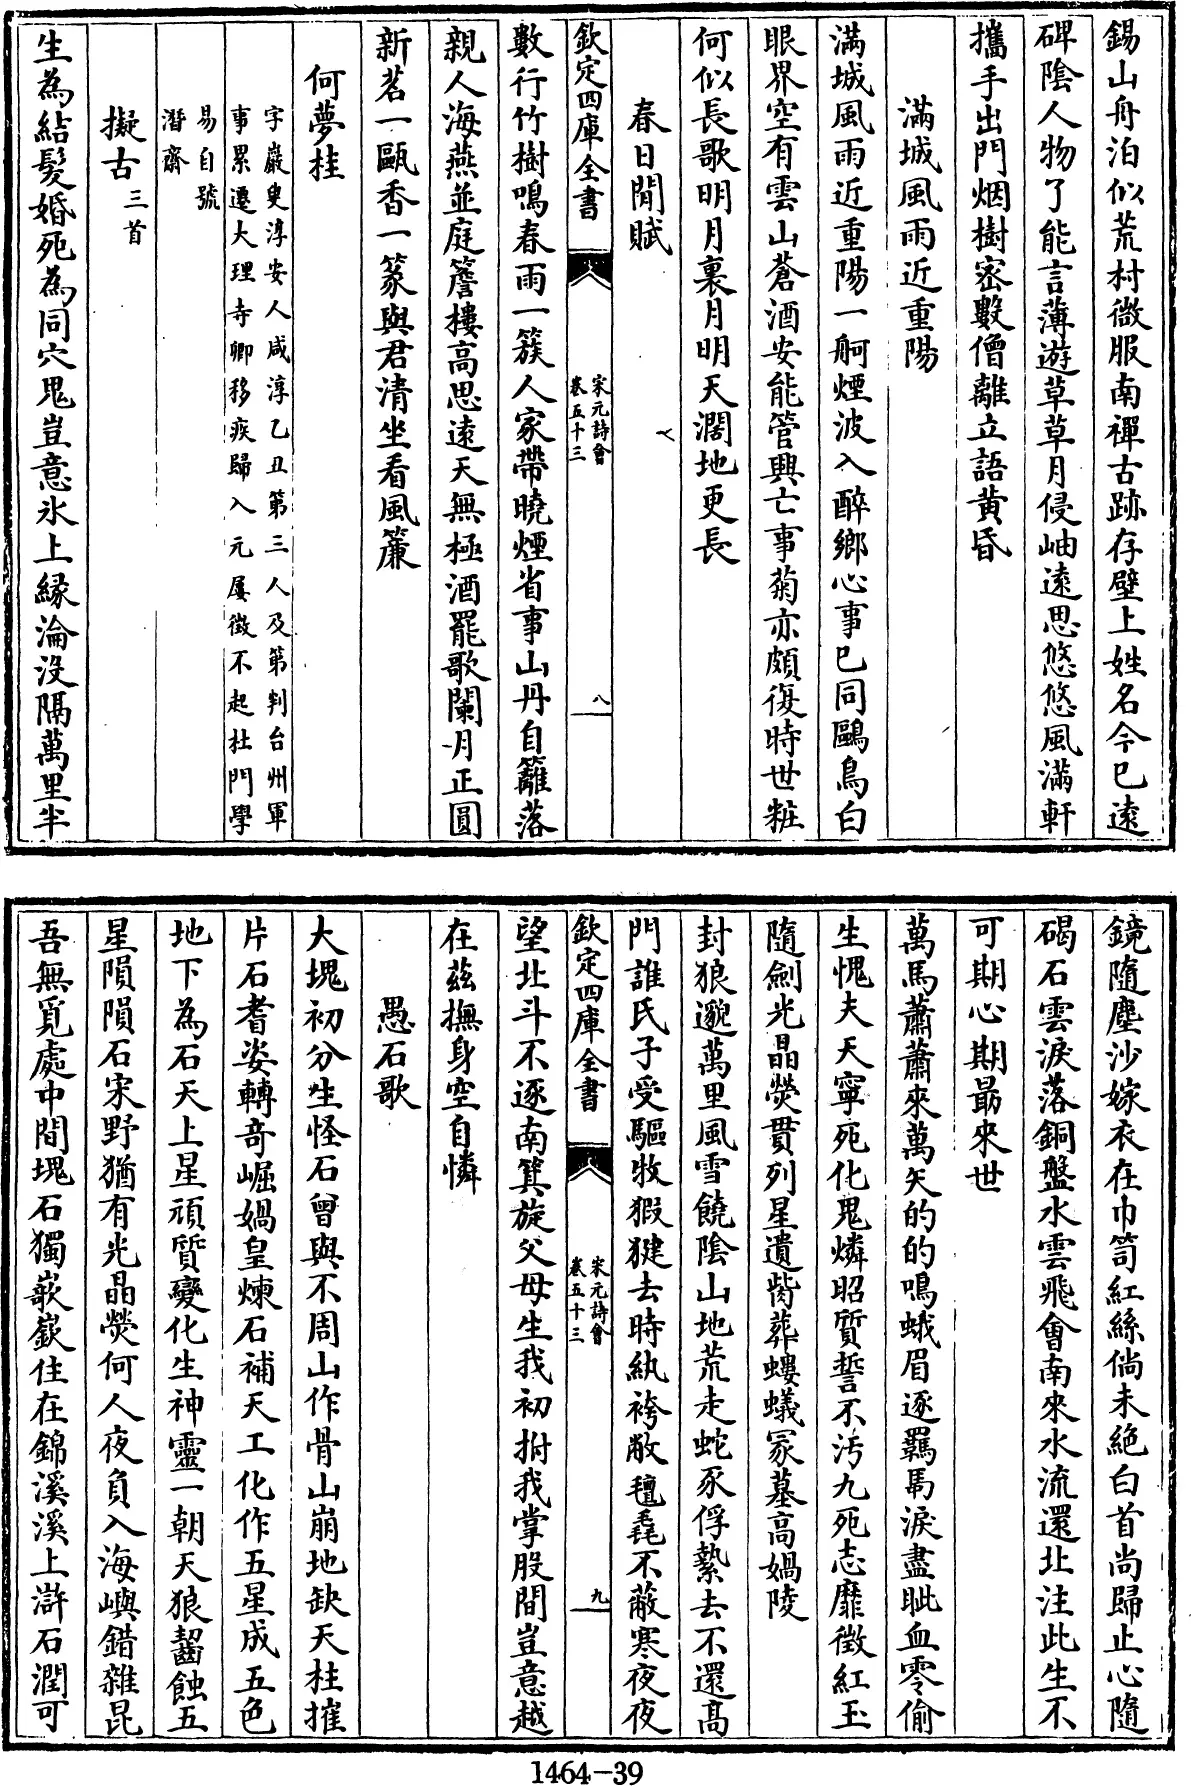 錫山舟泊似荒村微服南禪古跡存壁上姓名今已遠
碑陰人物了能言薄遊草草月侵岫遠思悠悠風滿軒
攜手出門烟樹密數僧離立語黄昏
滿城風雨近重陽
滿城風雨近重陽一舸煙波入醉鄉心事已同鷗鳥白
眼界空有雲山蒼酒安能管興亡事菊亦頗復時世粧
何似長歌明月裏月明天濶地更長
春日閒賦
欽定四庫全書
宋元詩會
卷五十三
八
數行竹樹鳴春雨一簇人家帶曉煙省事山丹自籬落
親人海燕並庭簷樓高思遠天無極酒罷歌闌月正圓
新茗一甌香一篆與君清坐看風簾
何夢桂
字巖叟淳安人咸淳乙丑第三人及第判台州軍
事累遷大理寺卿移疾歸入元屢徵不起杜門學
易自號
潛齋
擬古三首
生為結髮婚死為同穴鬼豈意氷上緣淪沒隔萬里半
鏡隨塵沙嫁衣在巾笥紅絲倘未絶白首尚歸止心隨
碣石雲淚落銅盤水雲飛會南來水流還北注此生不
可期心期最來世
萬馬蕭蕭來萬矢的的鳴蛾眉逐羈馬淚盡眦血零偷
生愧夫天寧死化鬼燐昭質誓不汚九死志靡徵紅玉
隨劍光晶熒貫列星遺胔葬螻蟻冢墓高媧陵
封狼邈萬里風雪饒陰山地荒走蛇豕俘縶去不還髙
門誰氏子受驅牧猳犍去時紈袴敝氊毳不蔽寒夜夜
欽定四庫全書
宋元詩會
卷五十三
九
望北斗不逐南箕旋父母生我初拊我掌股間豈意越
在兹撫身空自憐
愚石歌
大塊初分生怪石曾與不周山作骨山崩地缺天柱摧
片石耆姿轉奇崛媧皇煉石補天工化作五星成五色
地下為石天上星頑質變化生神靈一朝天狼齧蝕五
星隕隕石宋野猶有光晶熒何人夜負入海嶼錯雜昆
吾無覓處中間塊石獨嵚嶔住在錦溪溪上滸石潤可
1464-39